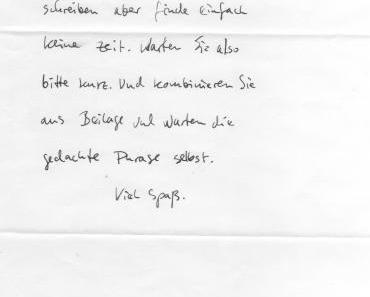 schreiben aber finde einfach
keine Zeit. Warten Sie also
bitte kurz. Und kombinieren Sie
aus Beilage und Warten die
gedachte Phrase selbst.
Viel Spaß.